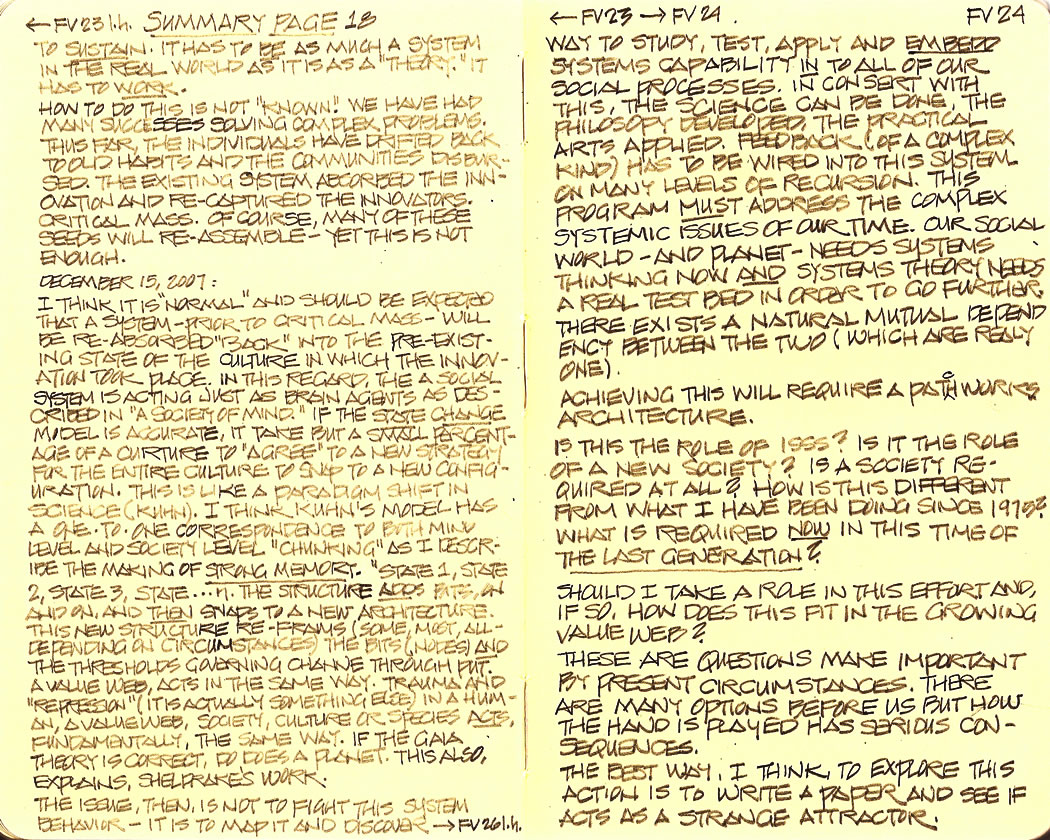 ← FV23 l.h. SUMMARY PAGE 18
TO SUSTAIN. IT HAS TO BE AS MUCH A SYSTEM
IN THE REAL WORLD AS IT IS AS A "THEORY." IT
HAS TO WORK.
HOW TO DO THIS IS NOT "KNOWN." WE HAVE HAD
MANY SUCCESSES SOLVING COMPLEX PROBLEMS.
THUS FAR, THE INDIVIDUALS HAVE DRIFTED BACK
TO OLD HABITS AND THE COMMUNITIES DISBUR-
SED. THE EXISTING SYSTEM ABSORBED THE INN-
OVATION AND RE-CAPTURED THE INNOVATORS.
CRITICAL MASS. OF COURSE, MANY OF THESE
SEEDS WILL RE-ASSEMBLE - YET THIS IS NOT
ENOUGH.
DECEMBER 15, 2007:
I THINK IT IS "NORMAL" AND SHOULD BE EXPECTED
THAT A SYSTEM - PRIOR TO CRITICAL MASS - WILL
BE RE-ABSORBED "BACK" INTO THE PRE-EXIST-
ING STATE OF THE CULTURE IN WHICH THE INNOV-
ATION TOOK PLACE. IN THIS REGARD, THE A SOCIAL
SYSTEM IS ACTING JUST AS BRAIN AGENTS AS DES-
CRIBED IN "A SOCIETY OF MIND." IF THE STATE CHANGE
MODEL IS ACCURATE, IT TAKE BUT A SMALL PERCENT-
AGE OF A CURTURE TO "AGREE" TO A NEW STRATEGY
FOR THE ENTIRE CULTURE TO SNAP TO A NEW CONFIG-
URATION. THIS IS LIKE A PARADIGM SHIFT IN
SCIENCE (KUHN). I THINK KUHN'S MODEL HAS
A ONE-TO-ONE CORRESPONDENCE TO BOTH MIND
LEVEL AND SOCIETY LEVEL "CHUNKING" AS I DESCR-
IBE THE MAKING OF STRONG MEMORY. "STATE 1, STATE
2, STATE 3, STATE ... n. THE STRUCTURE ADDS BITS, ON
AND ON, AND THEN SNAPS TO A NEW ARCHITECTURE.
THIS NEW STRUCTURE RE-FRAMS (SOME, MOST, ALL -
DEPENDING ON CIRCUMSTANCES) THE BITS (NODES) AND
THE THRESHOLDS GOVERNING CHANNE THROUGH PUT.
A VALUE WEB, ACTS IN THE SAME WAY. TRAUMA AND
"REPRESSION" (IT IS ACTUALLY SOMETHING ELSE) IN A HUM-
AN, A VALUE WEB, SOCIETY, CULTURE OR SPECIES ACTS,
FUNDAMENTALLY, THE SAME WAY. IF THE GAIA
THEORY IS CORRECT, DO DOES A PLANET. THIS ALSO,
EXPLAINS, SHELDRAKE'S WORK.
THE ISSUE, THEN, IS NOT TO FIGHT THIS SYSTEM
BEHAVIOR - IT IS TO MAP IT AND DISCOVER → FV26 l.h.
← FV23 → FV24. FV24
WAY TO STUDY, TEST, APPLY AND EMBEDD
SYSTEMS CAPABILITY IN TO ALL OF OUR
SOCIAL PROCESSES. IN CONSERT WITH
THIS, THE SCIENCE CAN BE DONE, THE
PHILOSOPY DEVELOPED, THE PRACTICAL
ARTS APPLIED. FEEDBACK (OF A COMPLEX
KIND) HAS TO BE WIRED INTO THIS SYSTEM
ON MANY LEVELS OF RECURSION. THIS
PROGRAM MUST ADDRESS THE COMPLEX
SYSTEMIC ISSUES OF OUR TIME. OUR SOCIAL
WORLD - AND PLANET - NEEDS SYSTEMS
THINKING NOW AND SYSTEMS THEORY NEEDS
A REAL TEST BED IN ORDER TO GO FURTHER.
THERE EXISTS A NATURAL MUTUAL DEPEND
ENCY BETWEEN THE TWO (WHICH ARE REALY
ONE).
ACHIEVING THIS WILL REQUIRE A PATHWORKS
ARCHITECTURE.
IS THIS THE ROLE OF ISSS? IS IT THE ROLE
OF A NEW SOCIETY? IS A SOCIETY RE-
QUIRED AT ALL? HOW IS THIS DIFFERENT
FROM WHAT I HAVE BEEN DOING SINCE 1975?
WHAT IS REQUIRED NOW IN THIS TIME OF
THE LAST GENERATION?
SHOULD I TAKE A ROLE IN THIS EFFORT AND,
IF SO, HOW DOES THIS FIT IN THE GROWING
VALUE WEB?
THESE ARE QUESTIONS MAKE IMPORTANT
BY PRESENT CIRCUMSTANCES. THERE
ARE MANY OPTIONS BEFORE US BUT HOW
THE HAND IS PLAYED HAS SERIOUS CON-
SEQUENCES.
THE BEST WAY, I THINK, TO EXPLORE THIS
ACTION IS TO WRITE A PAPER AND SEE IF
ACTS AS A STRANGE ATTRACTOR.